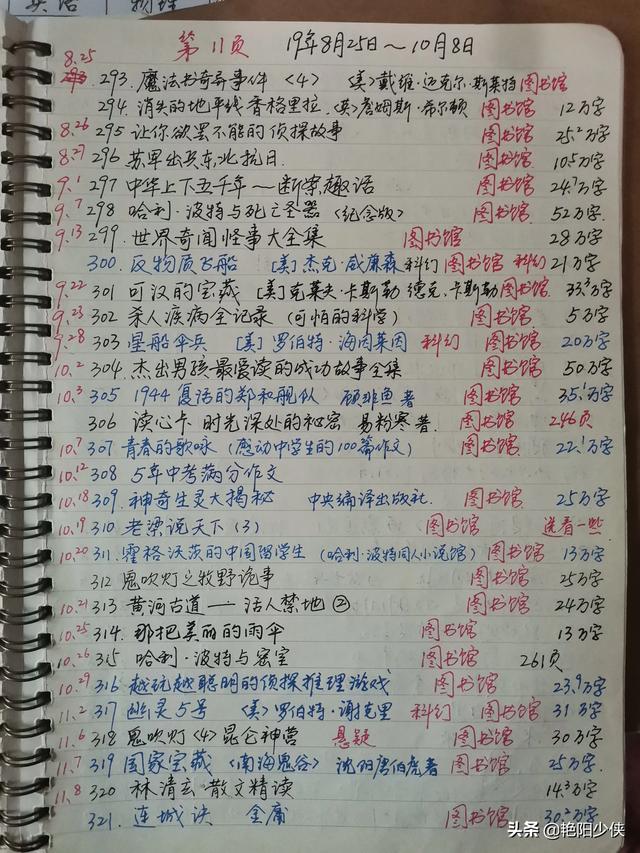 英语 物理
第11页 19年8月25日~10月8日
8.25 293. 魔法书奇异事件〈4〉〈美〉戴维·迈克尔·斯莱特 图书馆
294. 消失的地平线香格里拉.〈英〉詹姆斯·希尔顿 图书馆 12万字
8.26 295 让你欲罢不能的侦探故事 图书馆 25.2万字
8.27 296 苏军出兵东北抗日. 图书馆 10.5万字
9.1 297 中华上下五千年—断案趣话 图书馆 24.7万字
9.7 298 哈利·波特与死亡圣器〈纪念版〉 图书馆 52万字
9.13 299. 世界奇闻怪事大全集 图书馆 28万字
300. 反物质飞船 [美]杰克·威廉森 科幻 图书馆 科幻 21万字
9.22 301 可汉的宝藏 [美]克莱夫·卡斯勒 德克.卡斯勒 图书馆 33.3万字
9.23 302 杀人疾病全记录 (可怕的科学) 图书馆 5万字
9.28 303 星船伞兵 [美]罗伯特·海因莱因 科幻 图书馆 20万字
10.2 304. 杰出男孩最爱读的成功故事全集 图书馆 50万字
10.3 305 1944复活的郑和舰队 顾非鱼 著 图书馆 35.1万字
306 读心卡 时光深处的秘密 易粉寒 著. 图书馆 246页
10.7 307 青春的歌咏 (感动中学生的100篇作文) 图书馆 22.1万字
10.12 308 5年中考满分作文
10.18 309. 神奇生灵大揭秘 中央编译出版社. 图书馆 25万字
10.19 310 老梁说天下(3) 图书馆 选看一些
10.20 311. 霍格沃茨的中国留学生 (哈利·波特同人小说馆) 图书馆 13万字
312 鬼吹灯之牧野诡事 图书馆 25万字
10.21 313 黄河古道——活人禁地② 图书馆 24万字
10.25 314. 那把美丽的雨伞 图书馆 13万字
10.26 315 哈利·波特与密室 图书馆 261页
10.29 316 越玩越聪明的侦探推理游戏 图书馆 23.9万字
11.2 317 幽灵5号 〈美〉罗伯特·谢克里 科幻 图书馆 31万字
11.6 318 鬼吹灯〈4〉昆仑神宫 悬疑 图书馆 30万字
11.7 319 国家宝藏〈南海鬼谷〉 沈阳唐伯虎著 图书馆 25万字.
11.8 320 林清玄散文精读 14.3万字
321. 连城诀 金庸 图书馆 30.2万字
头条 @艳阳少侠